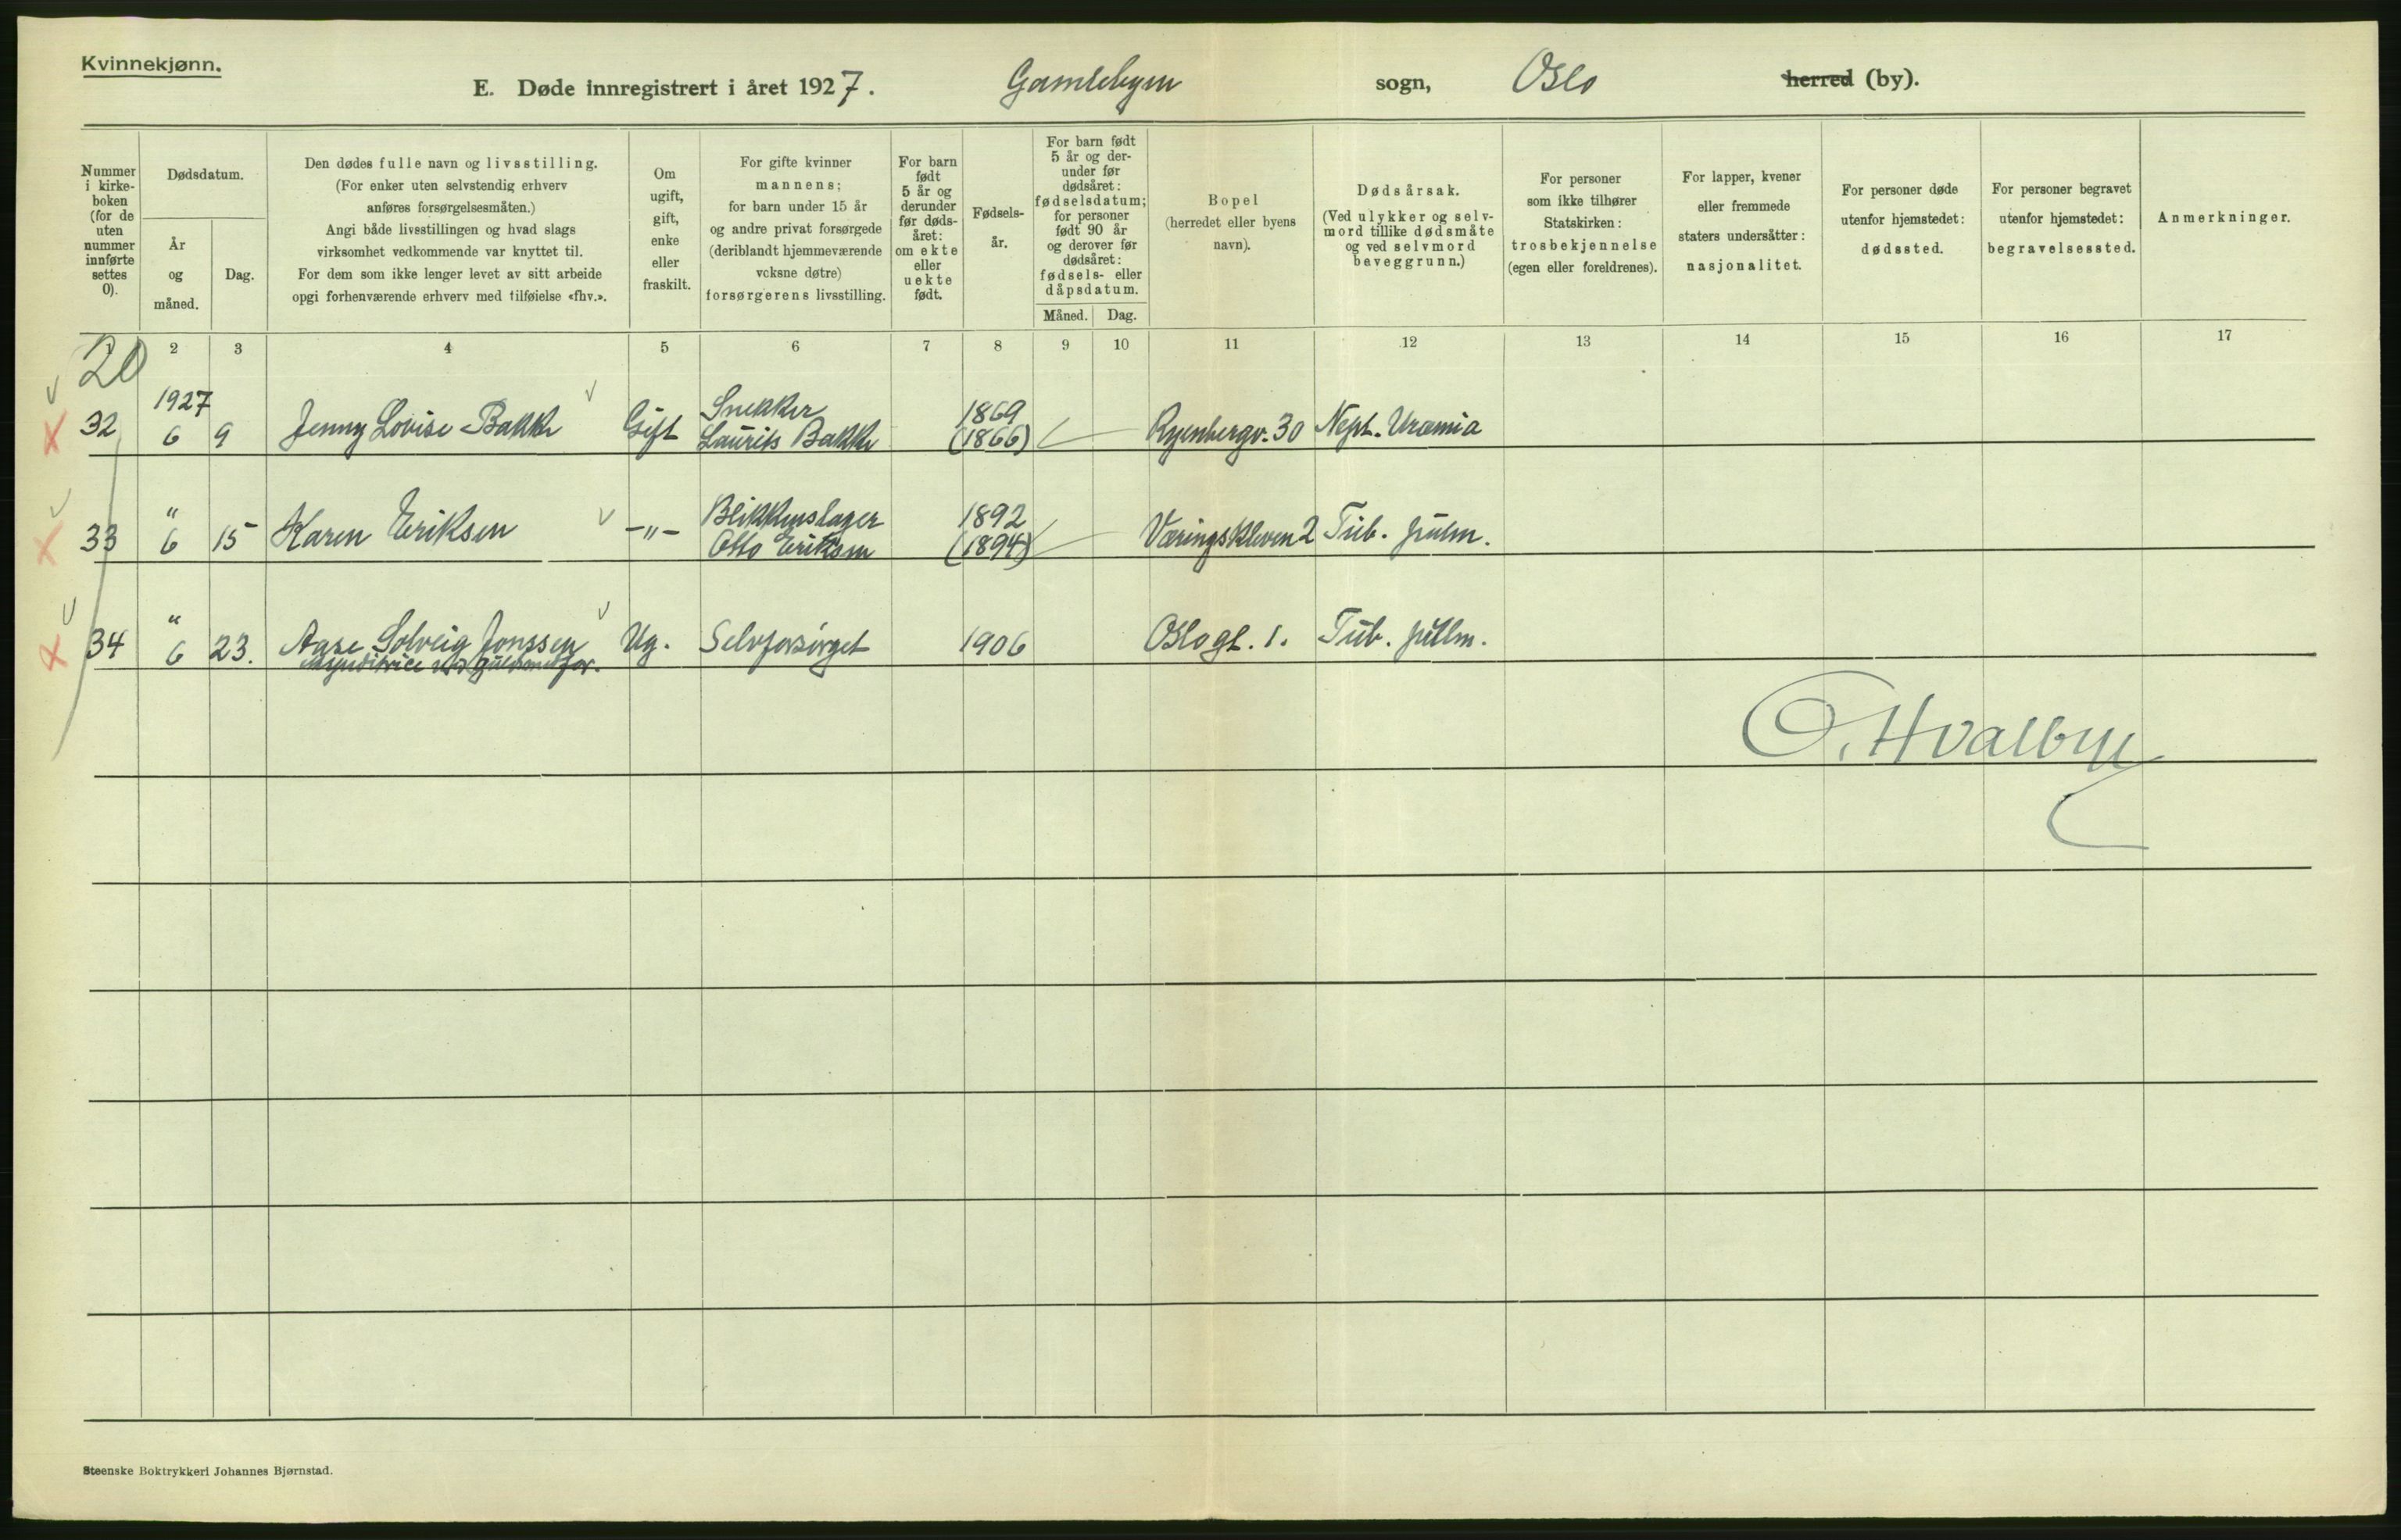 Kvinnekjønn.
E. Døde innregistrert i året 1927. Gamlebyen sogn, Oslo herred (by).
Nummer i kirke- boken (for de uten nummer innførte settes 0).
Dødsdatum.
År og måned.
Dag.
Den dødes fulle navn og livsstilling.
(For enker uten selvstendig erhverv
anføres forsørgelsesmåten.)
Angi både livsstillingen og hvad slags
virksomhet vedkommende var knyttet til.
For dem som ikke lenger levet av sitt arbeide
opgi forhenværende erhverv med tilføielse «fhv.».
Om ugift, gift, enke eller fraskilt.
For gifte kvinner
mannens;
for barn under 15 år
og andre privat forsørgede
(deriblandt hjemmeværende
voksne døtre)
forsørgerens livsstilling.
For barn født 5 år og derunder før døds- året: om ekte eller uekte født.
Fødsels- år.
For barn født 5 år og der- under før dødsåret: fødselsdatum; for personer født 90 år og derover før dødsåret: fødsels- eller dåpsdatum.
Måned. Dag.
Bopel
(herredet eller byens
navn).
Dødsårsak.
(Ved ulykker og selv-
mord tillike dødsmåte
og ved selvmord
beveggrunn.)
For personer
som ikke tilhører
Statskirken:
trosbekjennelse
(egen eller foreldrenes).
For lapper, kvener
eller fremmede
staters undersåtter:
nasjonalitet.
For personer døde
utenfor hjemstedet:
dødssted.
For personer begravet
utenfor hjemstedet:
begravelsessted.
Anmerkninger.
20 2 3 4 5 6 7 8 9 10 11 12 13 14 15 16 17
1927 Snekker 1869
32 6 9 Jenny Lovise Bakke Gift Laurits Bakke (1866) Ryenbergv. 30 Neph. Uræmia
" Blikkenslager 1892
33 6 15 Karen Eriksen -"- Otto Eriksen (1894) Væringskleven 2 Tub. pulm.
"
34 6 23. Aase Solveig Jonssen Ug. Selvforsørget 1906 Oslogt. 1. Tub. pulm.
O. Hvalbye
Steenske Boktrykkeri Johannes Bjørnstad.